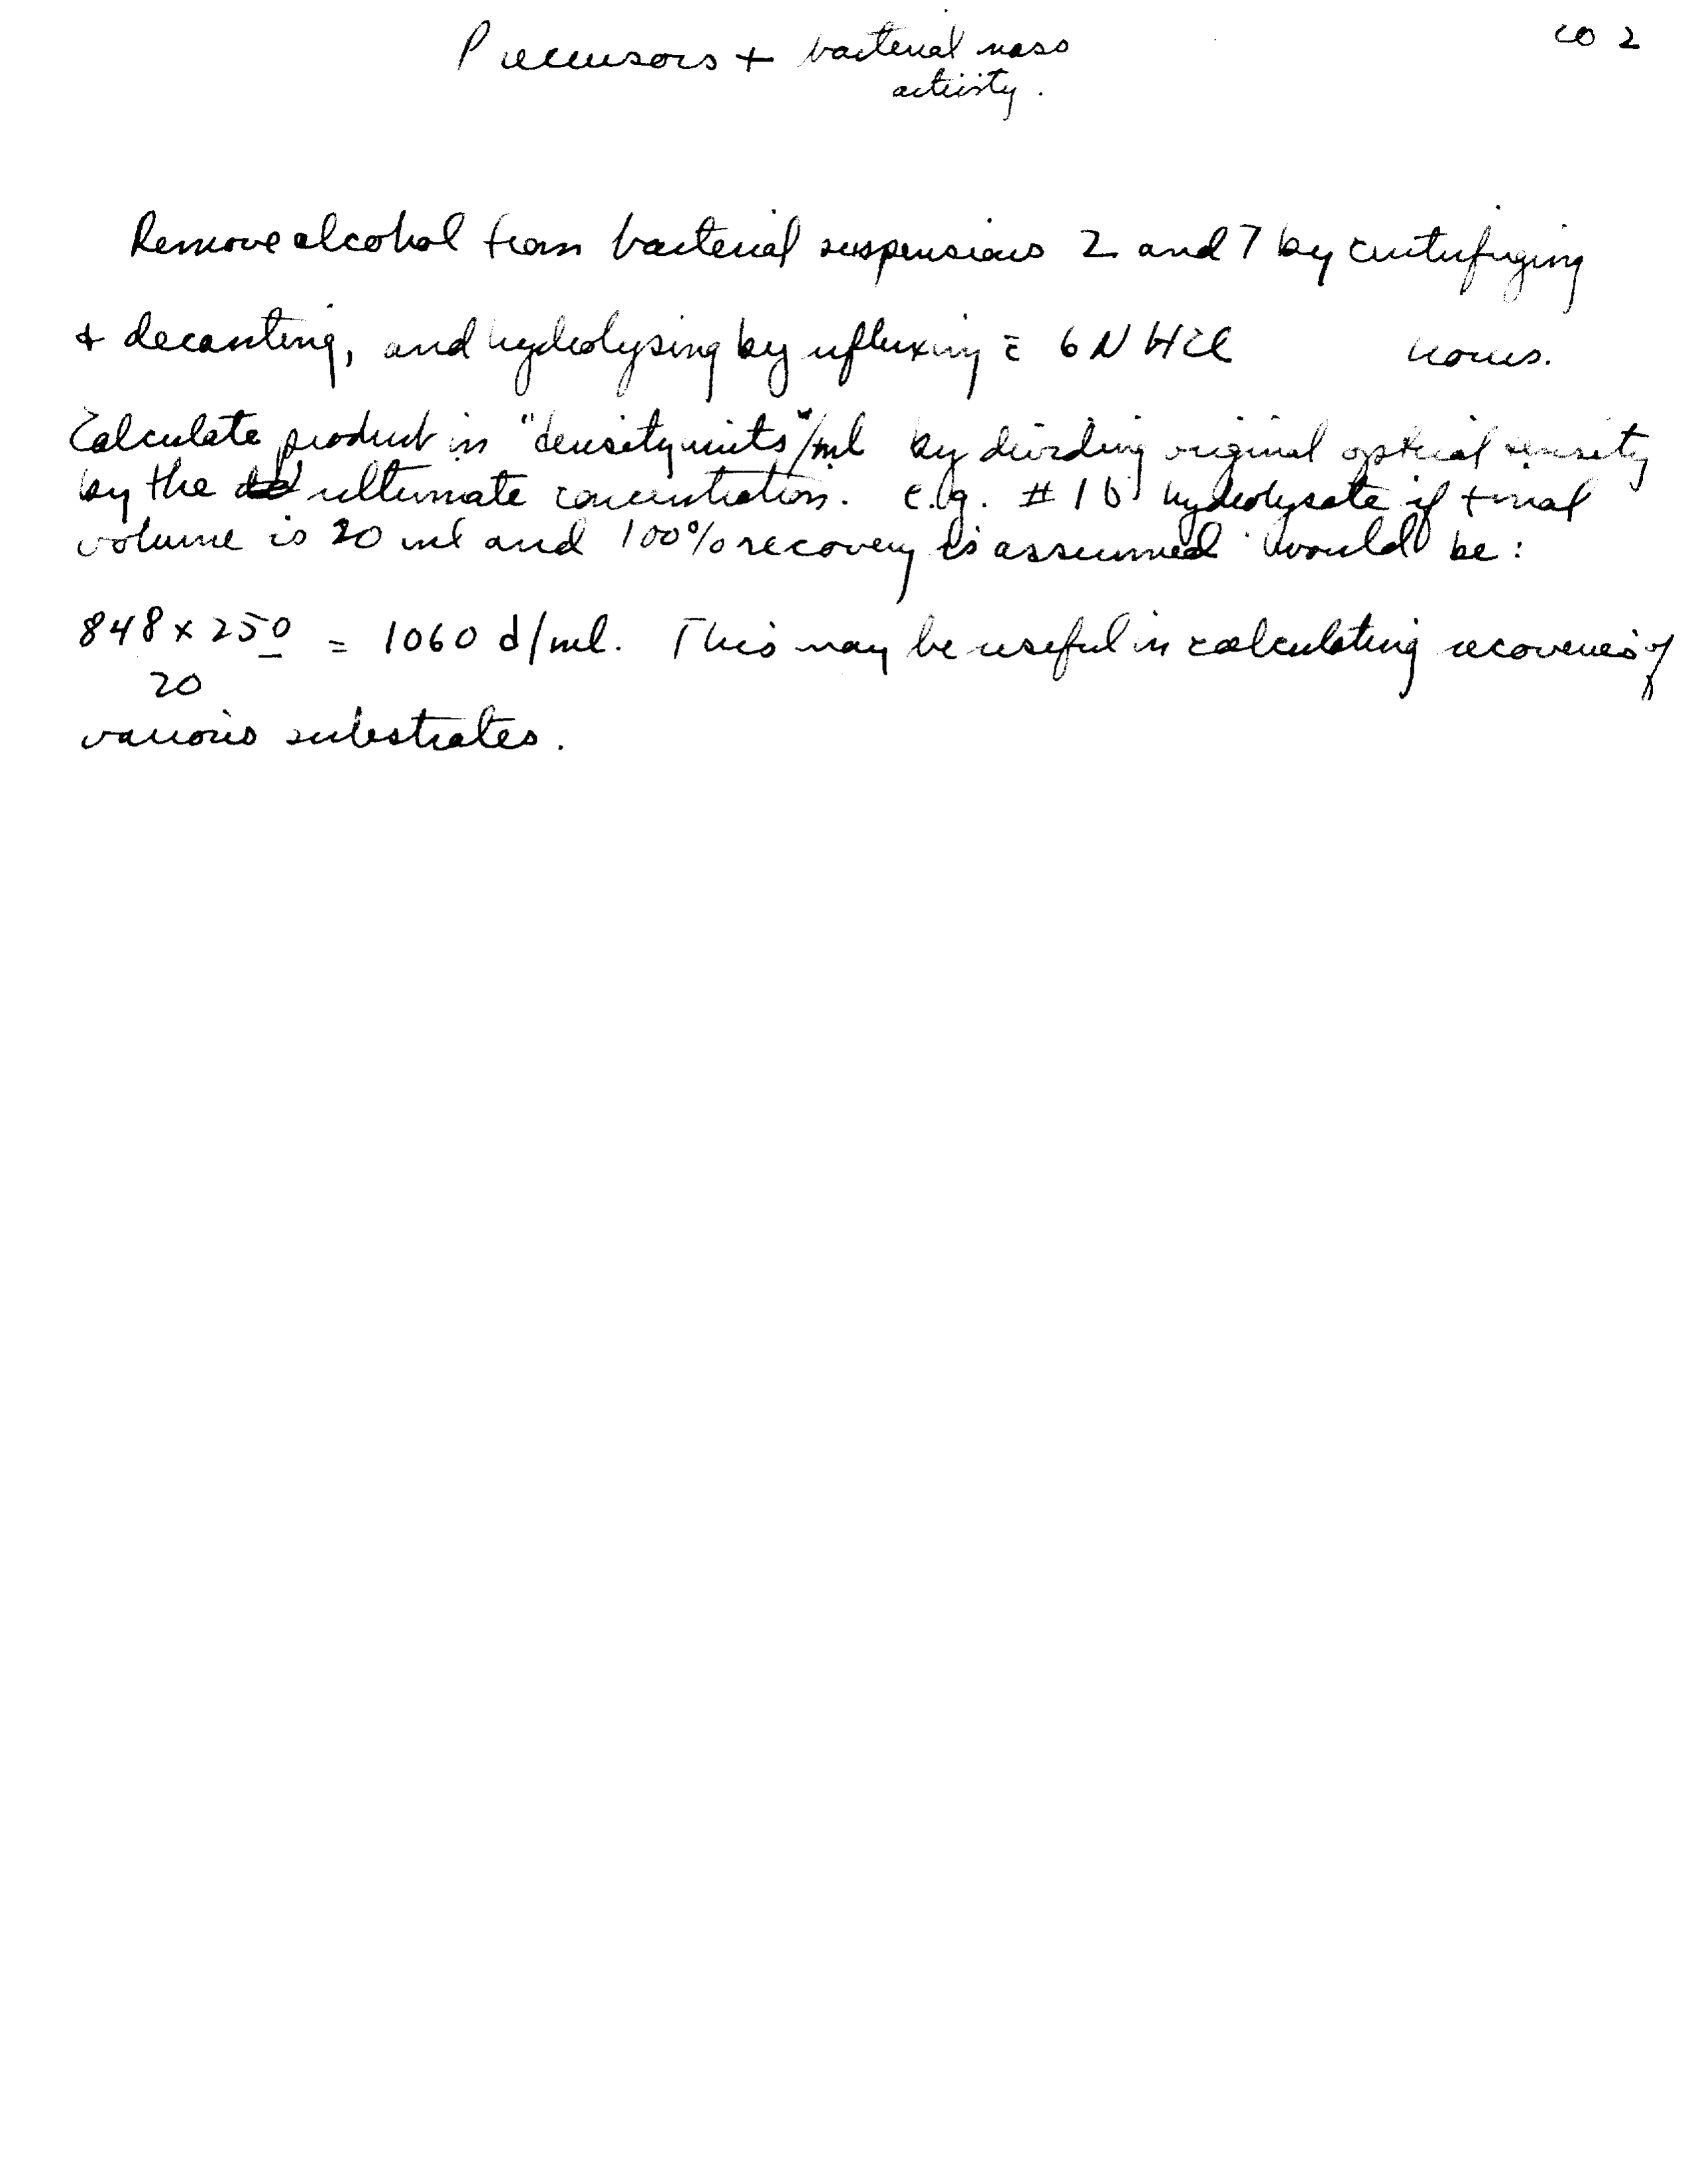 Precursors + bacterial mass
activity.
CO 2
Remove alcohol from bacterial suspensions 2 and 7 by centrifuging
+ decanting, and hydrolysing by refluxing c̄ 6 N HCl hours.
Calculate product in "density units"/ml by dividing original optical density
by the ultimate concentration. e.g. # 1 b hydrolysate if final
volume is 20 ml and 100% recovery is assumed would be:
848 x 250 = 1060 d/ml. This may be useful in calculating recoveries of
20
various substrates.